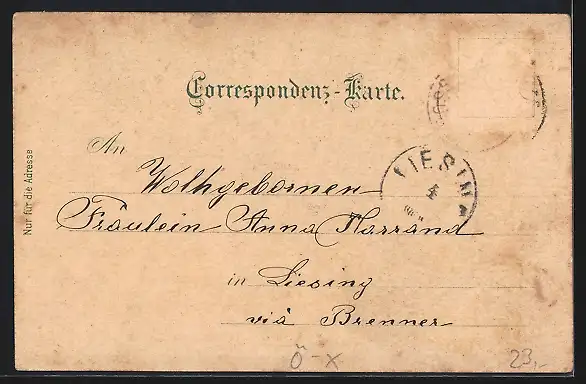 Correspondenz-Karte.
An
Wolhgebornen
Fräulein Anna Harrand
in Liesing
viâ Brenner
Nur für die Adresse
LIESING
4
Ö-X
23,-